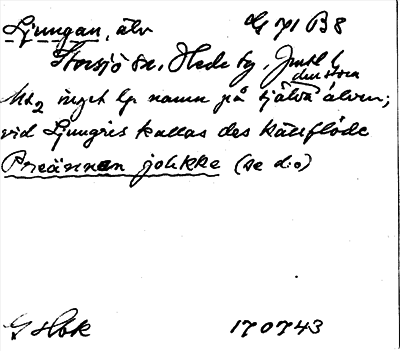 Ljungan, älv G 71 B8
Storsjö sn, Hede tg, Jmtl l
den stora
Mt2 inget lp. namn på själva älven;
vid Ljungris kallas des källflöde
Preännen johkke (se d:o)
170743